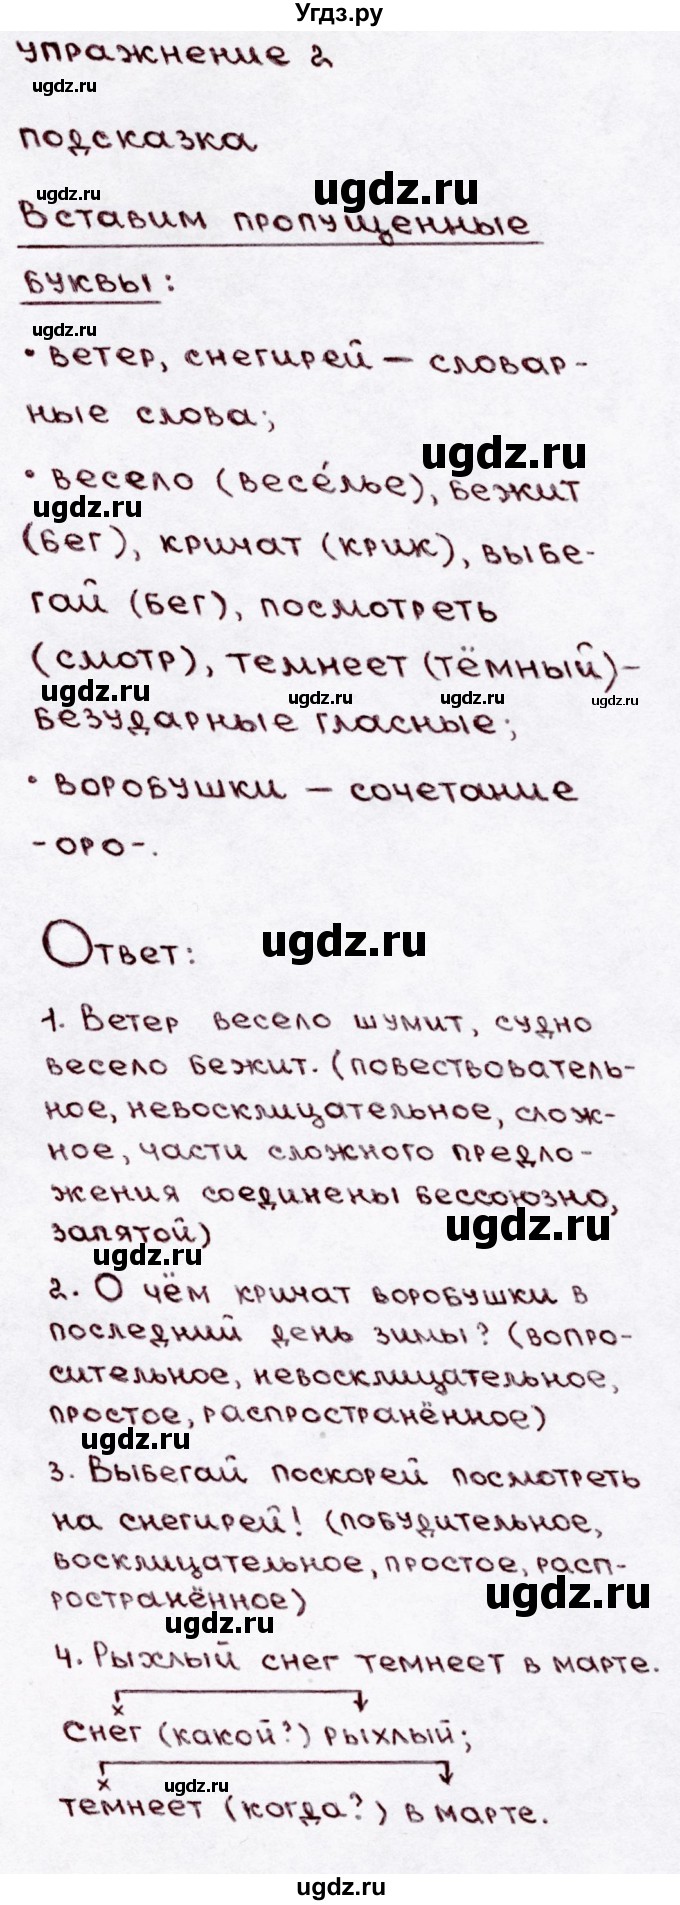 Угдз.ру
упражнение 2
ugdz.ru
подсказка
ugdz.ru
ugdz.ru
Вставим пропущенные
буквы:
ugdz.ru
• ветер, снегирей – словар-
ные слова;
ugdz.ru
• весело (весе́лье), бежит
ugdz.ru
(бег), кричат (крик), выбе-
гай (бег), посмотреть
(смотр), темнеет (тёмный)–
ugdz.ru ugdz.ru ugdz.ru ugdz.ru
безударные гласные;
• воробушки – сочетание
-оро-.
Ответ:
ugdz.ru
1. Ветер весело шумит, судно
весело бежит. (повествователь-
ное, невосклицательное, слож-
ное, части сложного предло-
жения соединены бессоюзно,
ugdz.ru
запятой)
ugdz.ru
2. О чём кричат воробушки в
последний день зимы? (вопро-
сительное, невосклицательное,
простое, распространённое)
ugdz.ru
3. Выбегай поскорей посмотреть
на снегирей! (побудительное,
восклицательное, простое, расп-
ugdz.ru
ространённое)
ugdz.ru
4. Рыхлый снег темнеет в марте.
х
Снег (какой?) рыхлый;
х
ugdz.ru
темнеет (когда?) в марте.
ugdz.ru